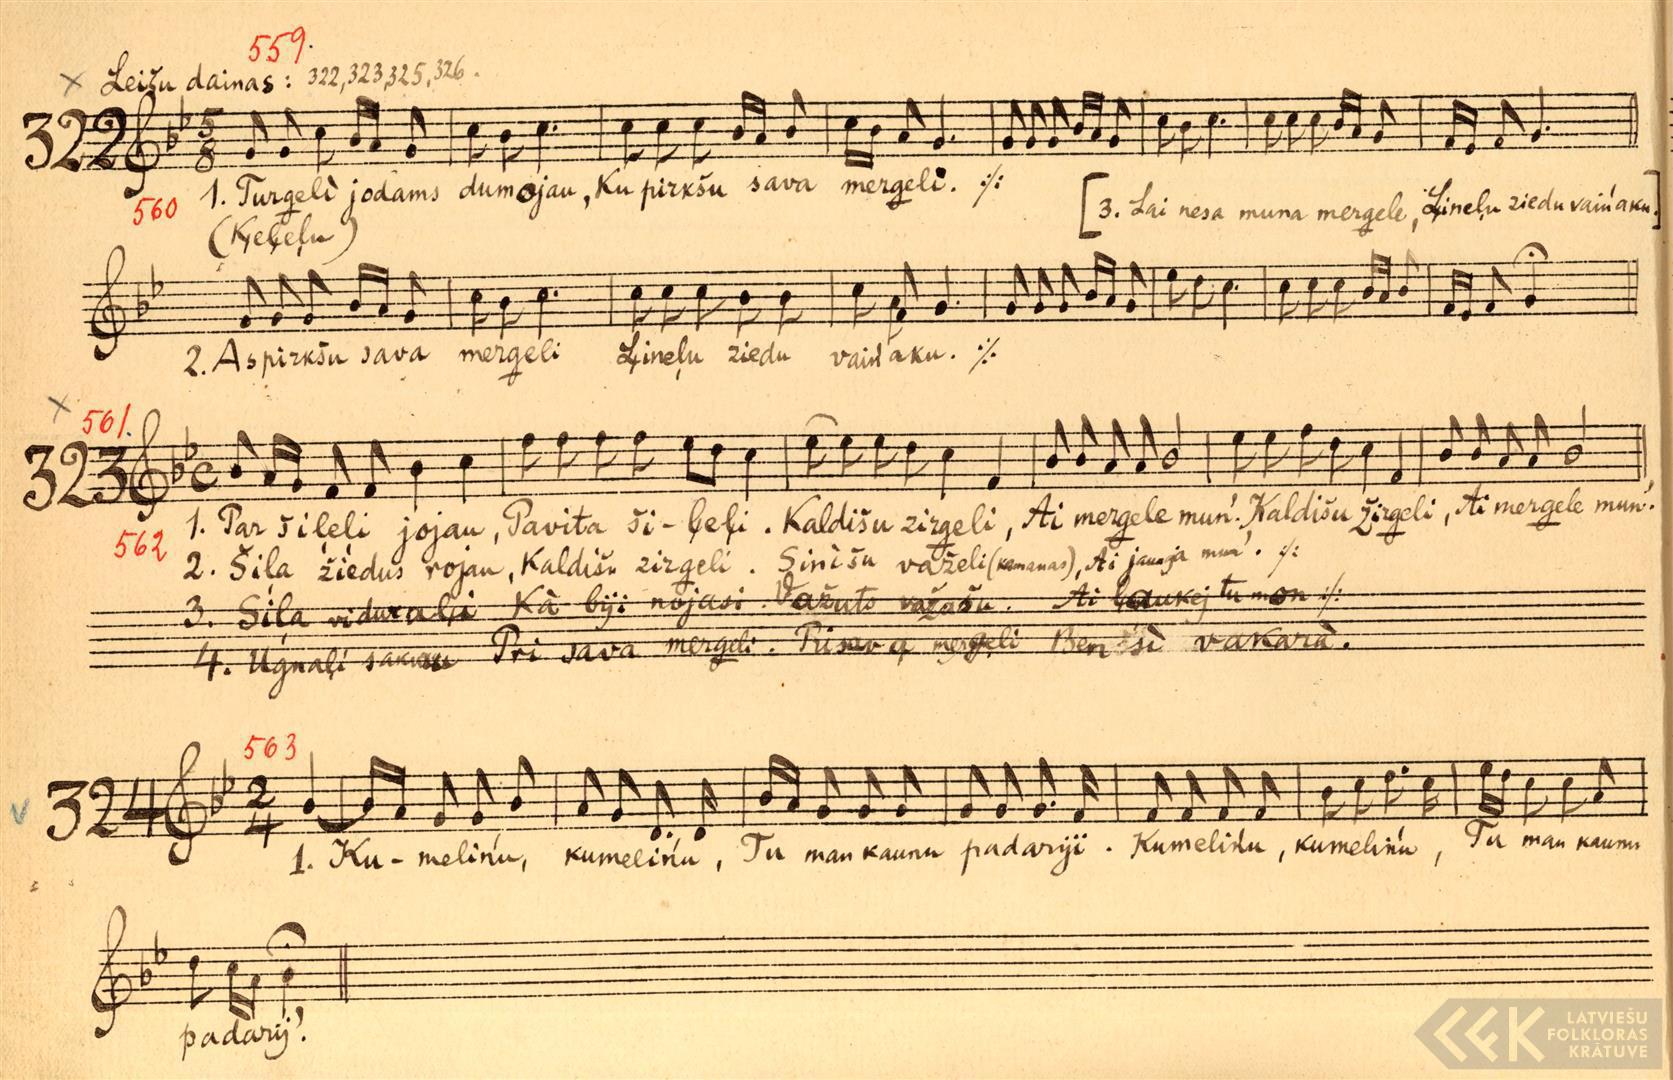 559.
Leišu dainas: 322, 323, 325, 326.
322
560 1. Turgelì jodams dumojau, Ku pirkšu sava mergeli. :/:
(Ķeļeļu)
[3. Lai nesa muna mergele, Ļineļu ziedu vaińaku.]
2. Aspirkšu sava mergeli Ļineļu ziedu vaińaku. :/:
561.
323
562 1. Par šiļeli jojau, Pavita ši-ļeļi. Kaldišu zirgeli, Ai mergele mun'. Kaldišu žirgeli, Ai mergele mun'.
2. Šiļa žiedus rojau, Kaldišu zirgeli. Sinišu važeli (kamanas), Ai jaunja mun'. :/:
3. Siļa viduraļi Kà biji nojasi. Važuts važašu. Ai ļaukej tu mon :/:
4. Ugnaļi sakuru Pri sava mergeli. Pri sava mergeli Ben šì vakarà.
563
324
1. Ku-melińu, kumelińu, Tu man kaunu padariji. Kumelińu, kumelińu, Tu man kaunu
padarij'.
LATVIEŠU
FOLKLORAS
KRĀTUVE